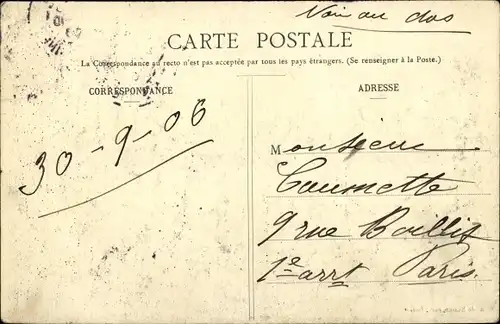 Voir au dos
CARTE POSTALE
La Correspondance au recto n'est pas acceptée par tous les pays étrangers. (Se renseigner à la Poste.)
CORRESPONDANCE
ADRESSE
30-9-06
Monsieur
Coumette
9 rue
1e arrt Paris